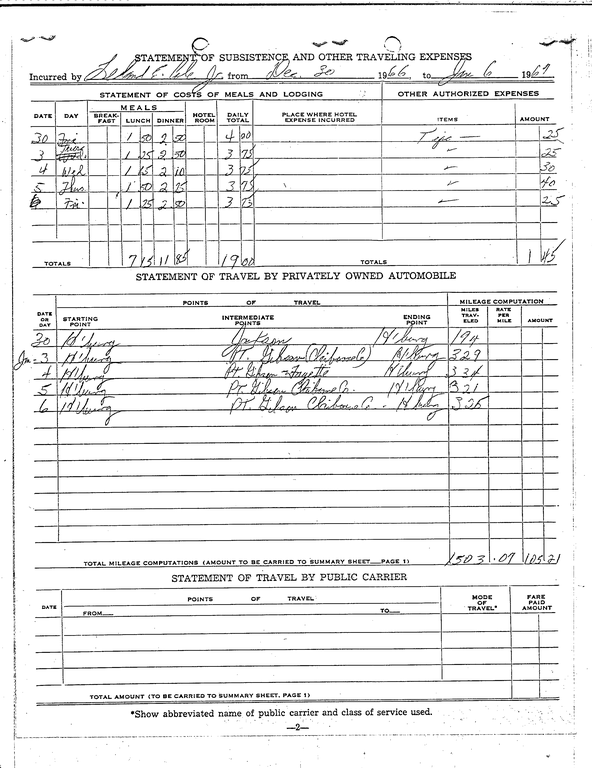 STATEMENT OF SUBSISTENCE AND OTHER TRAVELING EXPENSES
Incurred by Leland E. Cole Jr. from Dec 30 1966 to Jan 6 1967
STATEMENT OF COSTS OF MEALS AND LODGING OTHER AUTHORIZED EXPENSES
DATE DAY MEALS BREAK-FAST LUNCH DINNER HOTEL ROOM DAILY TOTAL PLACE WHERE HOTEL EXPENSE INCURRED ITEMS AMOUNT
30 Fri 1 50 2 50 4 00 Tips — 25
3 1 25 2 50 3 75 " 25
4 Wed 1 2 10 3 75 " 30
5 Thurs. 1 50 2 25 3 75 " 40
6 Fri. 1 25 2 50 3 75 " 25
TOTALS 7 15 11 85 19 00 TOTALS 1 45
STATEMENT OF TRAVEL BY PRIVATELY OWNED AUTOMOBILE
POINTS OF TRAVEL MILEAGE COMPUTATION
DATE OR DAY STARTING POINT INTERMEDIATE POINTS ENDING POINT MILES TRAV-ELED RATE PER MILE AMOUNT
30 H'burg Jackson H'burg 194
Jan - 3 H'burg PT. Gibson (Claiborne Co) H'burg 329
4 H'burg Pt Gibson - Fayette H'burg 334
5 H'burg PT. Gibson Claiborne Co. H'burg 321
6 H'burg PT. Gibson Claiborne Co - H'burg 325
TOTAL MILEAGE COMPUTATIONS (AMOUNT TO BE CARRIED TO SUMMARY SHEET—PAGE 1) 1503 .07 105.21
STATEMENT OF TRAVEL BY PUBLIC CARRIER
DATE POINTS OF TRAVEL MODE OF TRAVEL* FARE PAID AMOUNT
FROM— TO—
TOTAL AMOUNT (TO BE CARRIED TO SUMMARY SHEET, PAGE 1)
*Show abbreviated name of public carrier and class of service used.
—2—